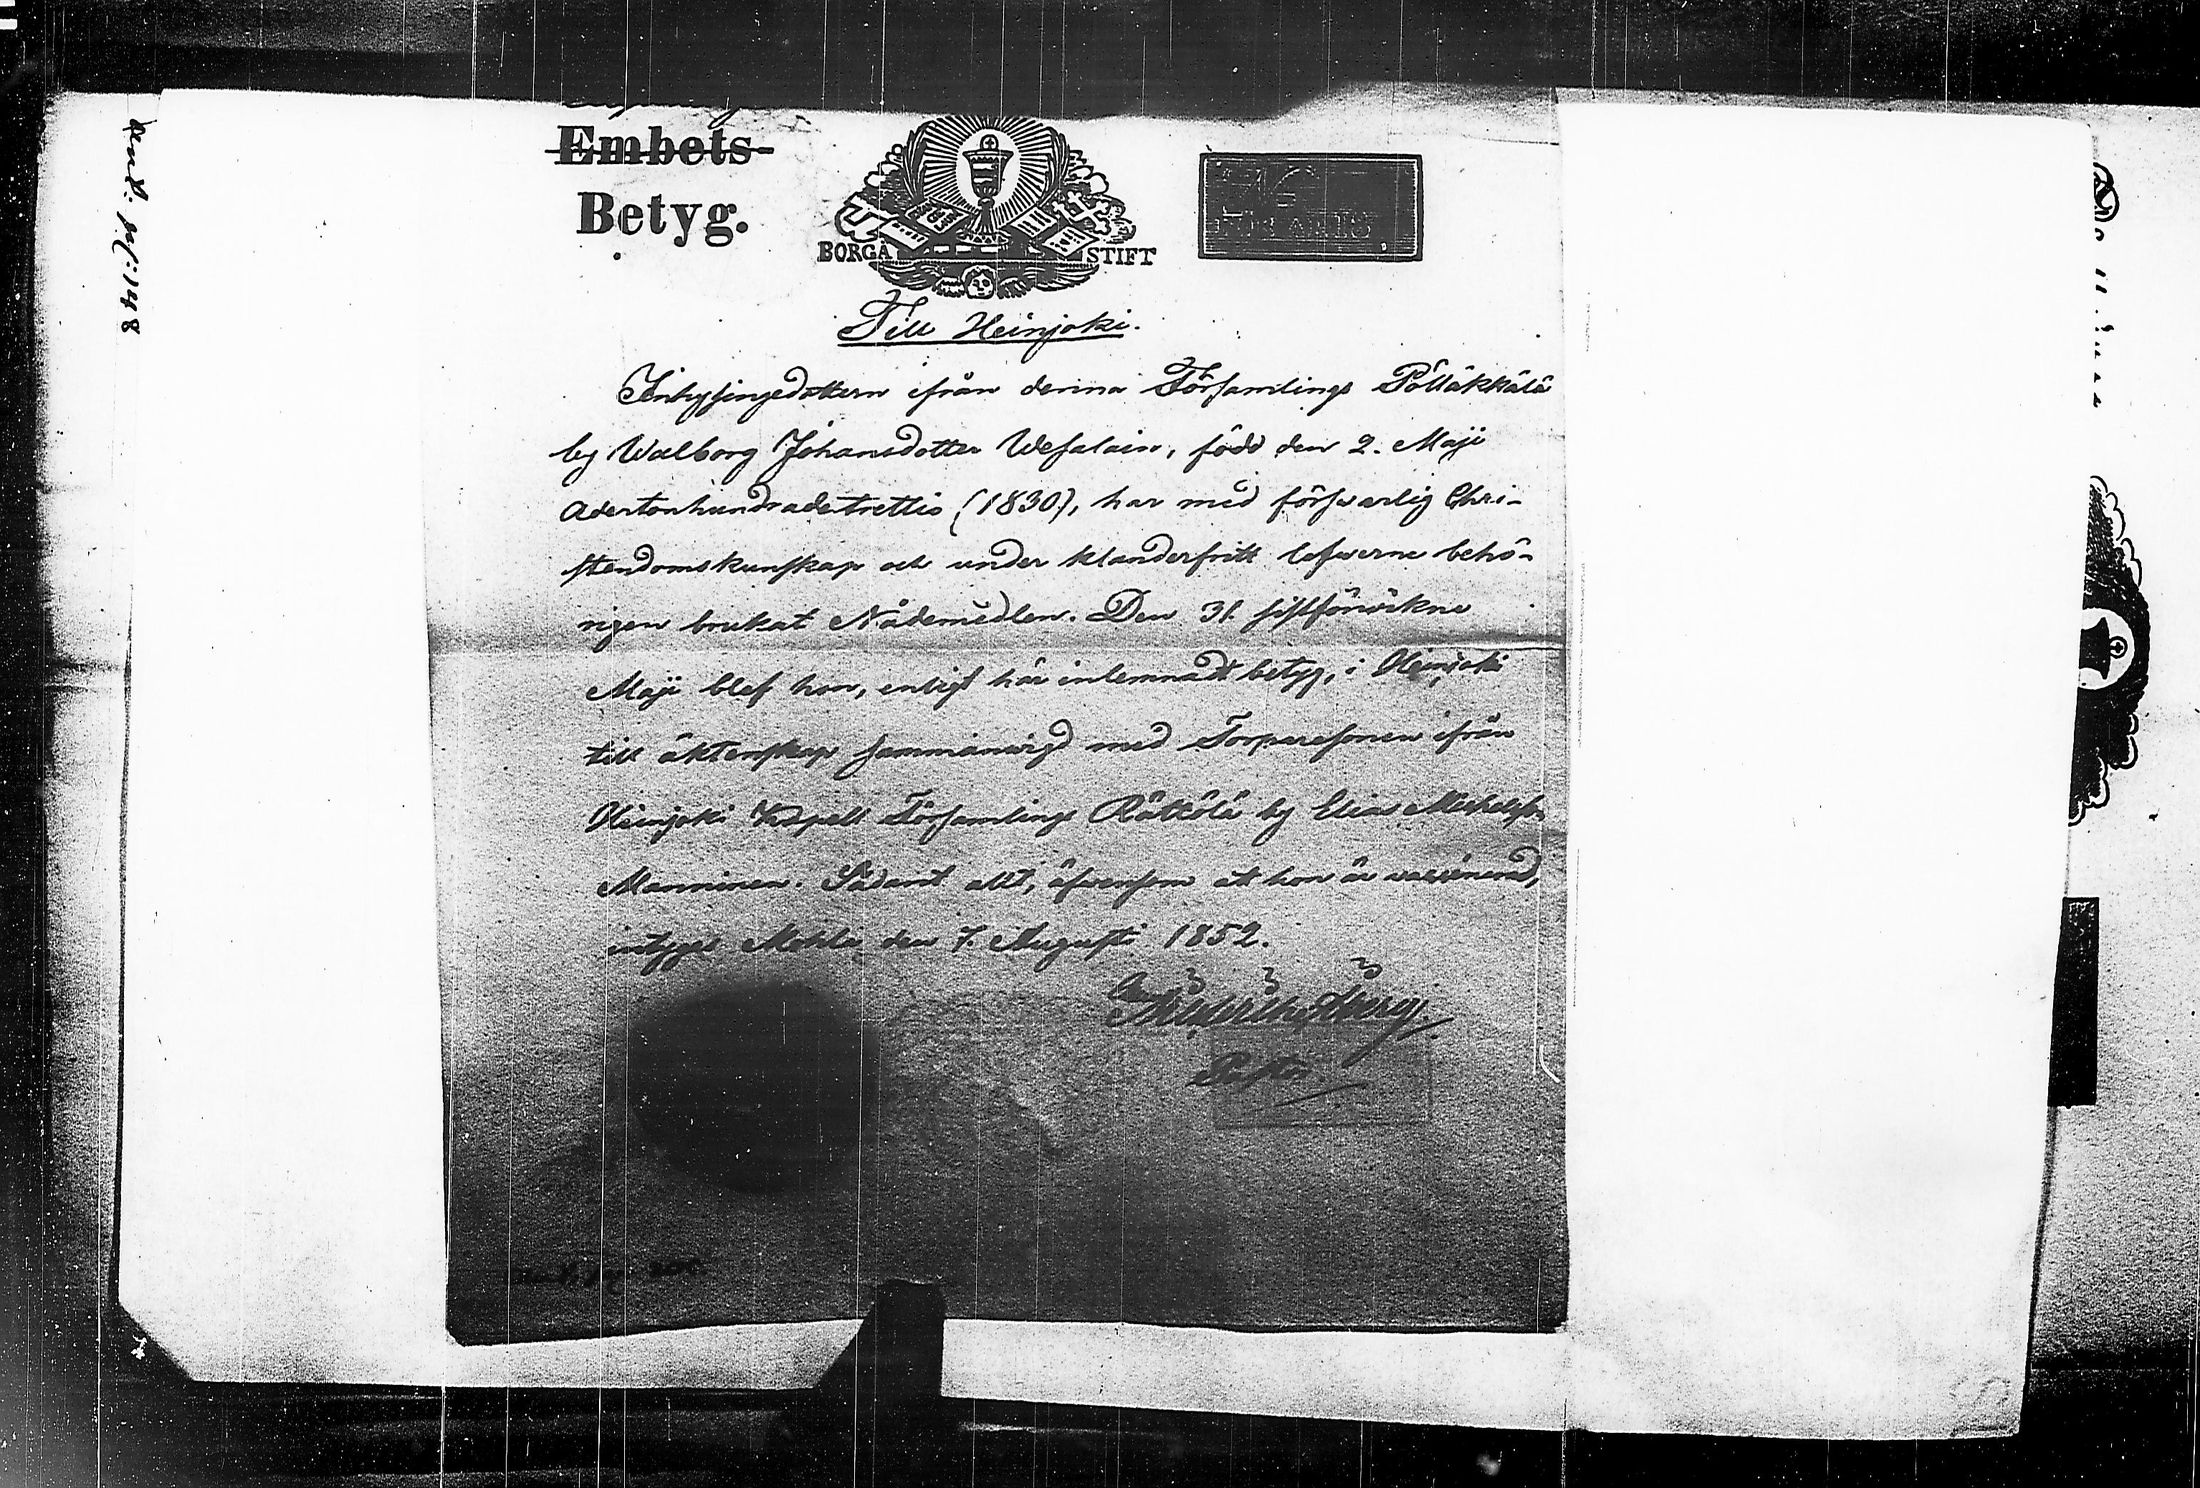 Embets-
Betyg.
BORGÅ STIFT
Till Heinjoki.
Inhysingedottern ifrån denna Församlings Pölläkkälä
by Walborg Johansdotter Wesalain, född den 2. Maji
Adertonhundradetrettio (1830), har med försvarlig Chri-
stendomskunskap och under klanderfritt lefwerne behö-
rigen brukat Nådemedlen. Den 31. sistförwikne
Maji blef hon, enligt här inlemnadt betyg, i Heinjoki
till äktenskap sammanwigd med Torparesonen ifrån
Heinjoki Kapell Församlings Rättölä by Elias Michelss.
Manninen. Sådant allt, äfvensom att hon är vaccinerad,
intygas Mohla den 7. Augusti 1852.
Pastor.